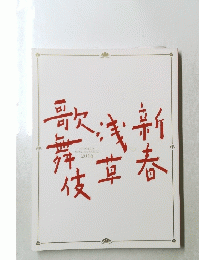 新春
浅草
歌舞伎